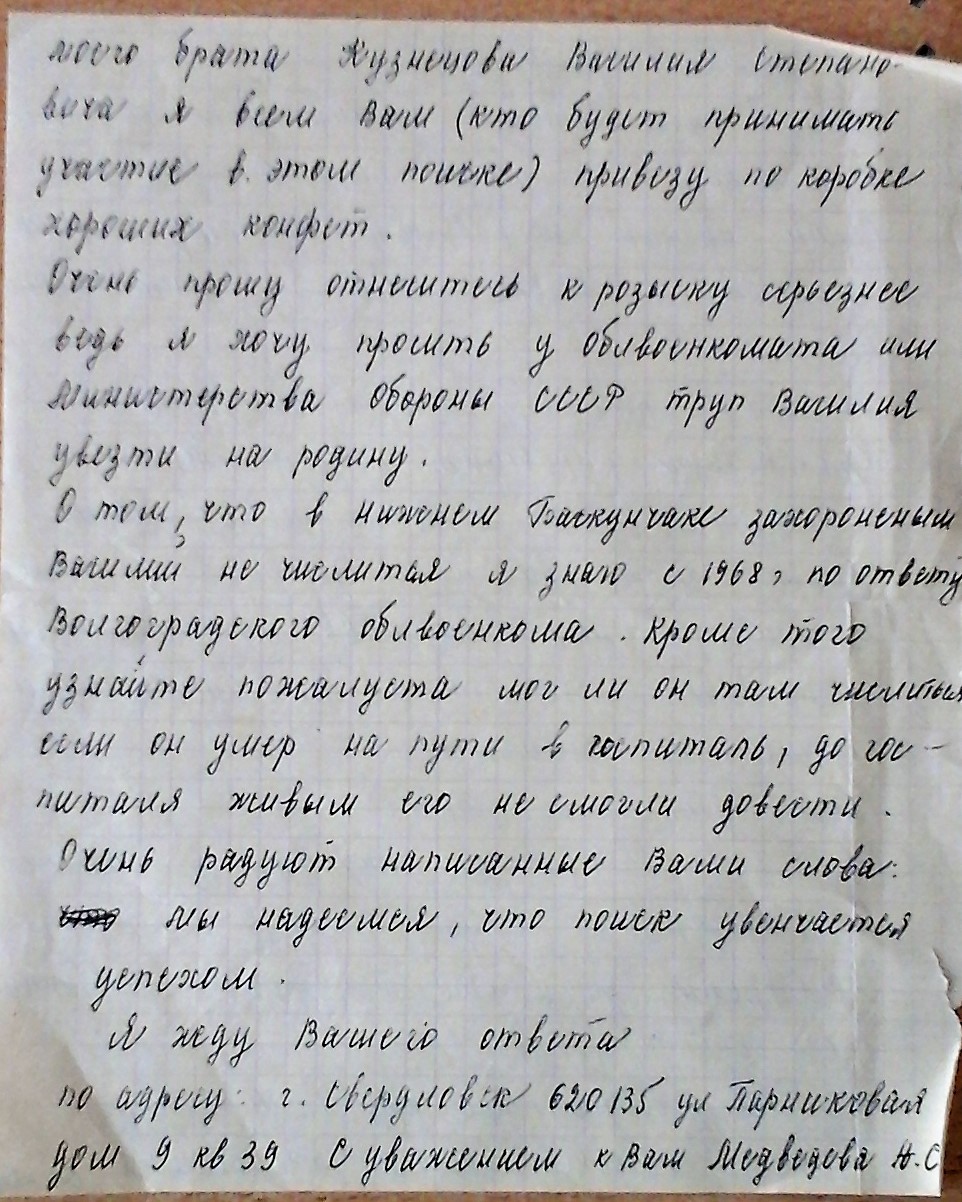 моего брата Кузнецова Василия Степано-
вича я всем Вам (кто будет принимать
участие в. этом поиске) привезу по коробке
хороших конфет.
Очень прошу отнеситесь к розыску серьезнее
ведь я хочу просить у облвоенкомата или
Министерства Обороны СССР труп Василия
увезти на родину.
О том, что в нижнем Баскунчаке захороненым
Василий не числится я знаю с 1968г по ответу
Волгоградского облвоенкома. Кроме того
узнайте пожалуста мог ли он там числиться
если он умер на пути в госпиталь, до гос-
питаля живым его не смогли довести.
Очень радуют написанные Вами слова:
мы надеемся, что поиск увенчается
успехом.
Я жду Вашего ответа
по адресу: г. Свердловск 620135 ул Парниковая
дом 9 кв 39 С уважением к Вам Медведева Н.С